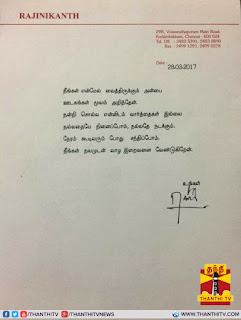 RAJINIKANTH
Chennai - 600 024
Date :
28-03-2017
நீங்கள் என்மேல் வைத்திருக்கும் அன்பை
ஊடகங்கள் மூலம் அறிந்தேன்.
நன்றி சொல்ல என்னிடம் வார்த்தைகள் இல்லை
நல்லதையே நினைப்போம், நல்லதே நடக்கும்.
நேரம் கூடிவரும் போது சந்திப்போம்.
நீங்கள் நலமுடன் வாழ இறைவனை வேண்டுகிறேன்.
உங்கள்
தந்தி
THANTHI TV
/THANTHITV
/THANTHITVNEWS
/THANTHITV